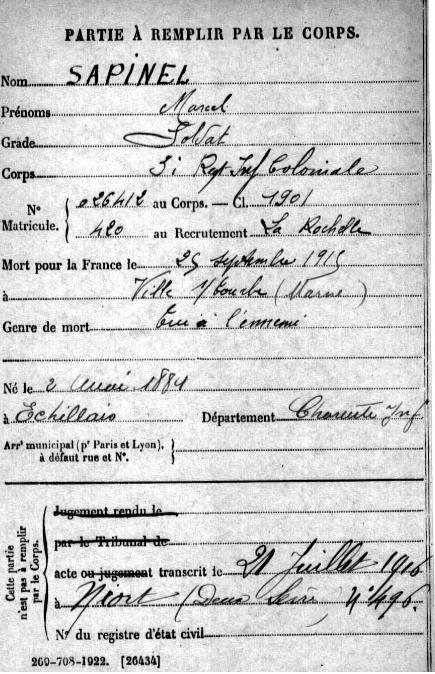 PARTIE À REMPLIR PAR LE CORPS.
Nom SAPINEL
Prénoms Marcel
Grade Soldat
Corps 3e Regt Inf Coloniale
N° Matricule. 026412 au Corps. — Cl. 1901
420 au Recrutement La Rochelle
Mort pour la France le 25 septembre 1915
à Ville s/ (Marne)
Genre de mort Tué à l'ennemi
Né le 2 1881
à Echillais Département Charente Inf
Arrt municipal (pr Paris et Lyon),
à défaut rue et N°.
Cette partie n'est pas à remplir par le Corps.
Jugement rendu le
par le Tribunal de
acte ou jugement transcrit le 21 Juillet 1916
à Niort (Deux Sèvres) N° 496.
N° du registre d'état civil
269-708-1922. [26434]